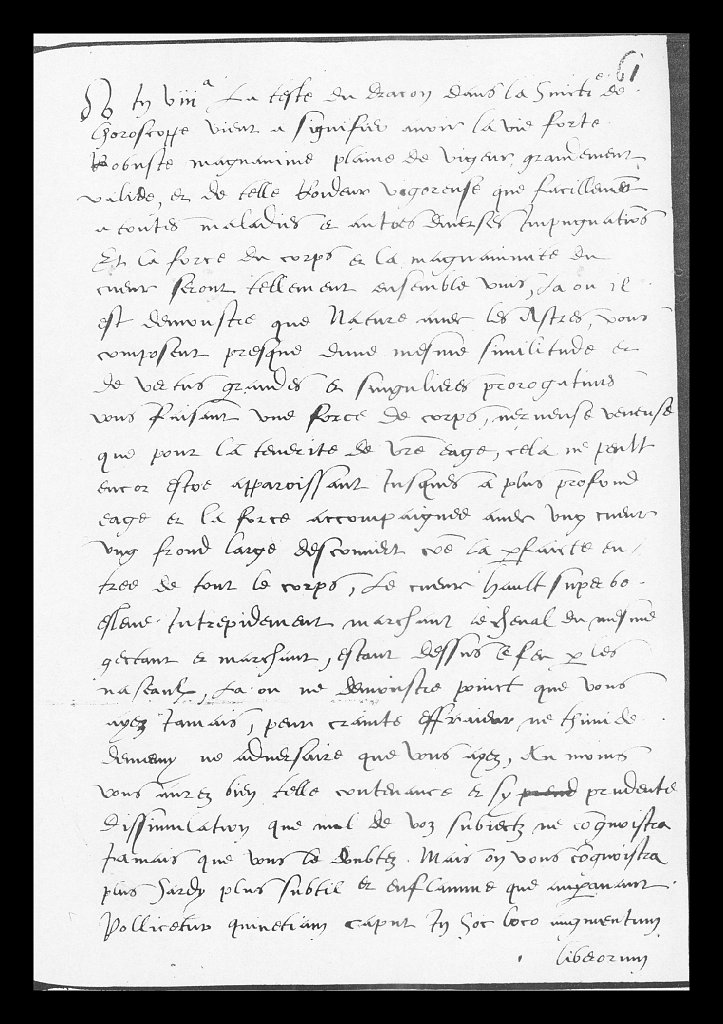 61
In viii.a La teste du dracon dans la huicti.e de
lhoroscoppe vient a signifier avoir la vie forte
Robuste magnanime plaine de vigeur grandement
valide, et de telle Roideur vigoreuse que facillement
a toutes maladies et autres diverses Impugnations
Et la force du corps et la magnanimite du
cueur seront tellement ensemble unis, La ou il
est demonstre que Nature avec les Astres, vous
composent presque dune mesme similitude et
de vertus grandes et singulieres prorogatives
vous faisant une force de corps, nerveuse veneuse
que pour la tenerite de vre eage, cela ne peult
encor estre apparoissant Jusques a plus profond
eage et la force accompaignee avec ung cueur
ung frond large descouvert coe la parfaicte en/
tree de tout le corps, Le cueur hault superbe
esleve Intrepidement marchant le cheval du mesme
gectant et marchant, estant dessus le feu par les
naseaulx, La ou ne demonstre poinct que vous
ayez Jamais, peur craincte effraieur ne thimide
demeny ne adversaire que vous ayez, Au moins
vous aurez bien telle contenance et sy prudente
dissimulation que nul de voz subiectz ne cognoistra
Jamais que vous le doubtez. Mais on vous cognoistra
plus hardy plus subtil et enflamme que auparavant.
Pollicetur quinetiam caput In hoc loco augmentum
liberorum